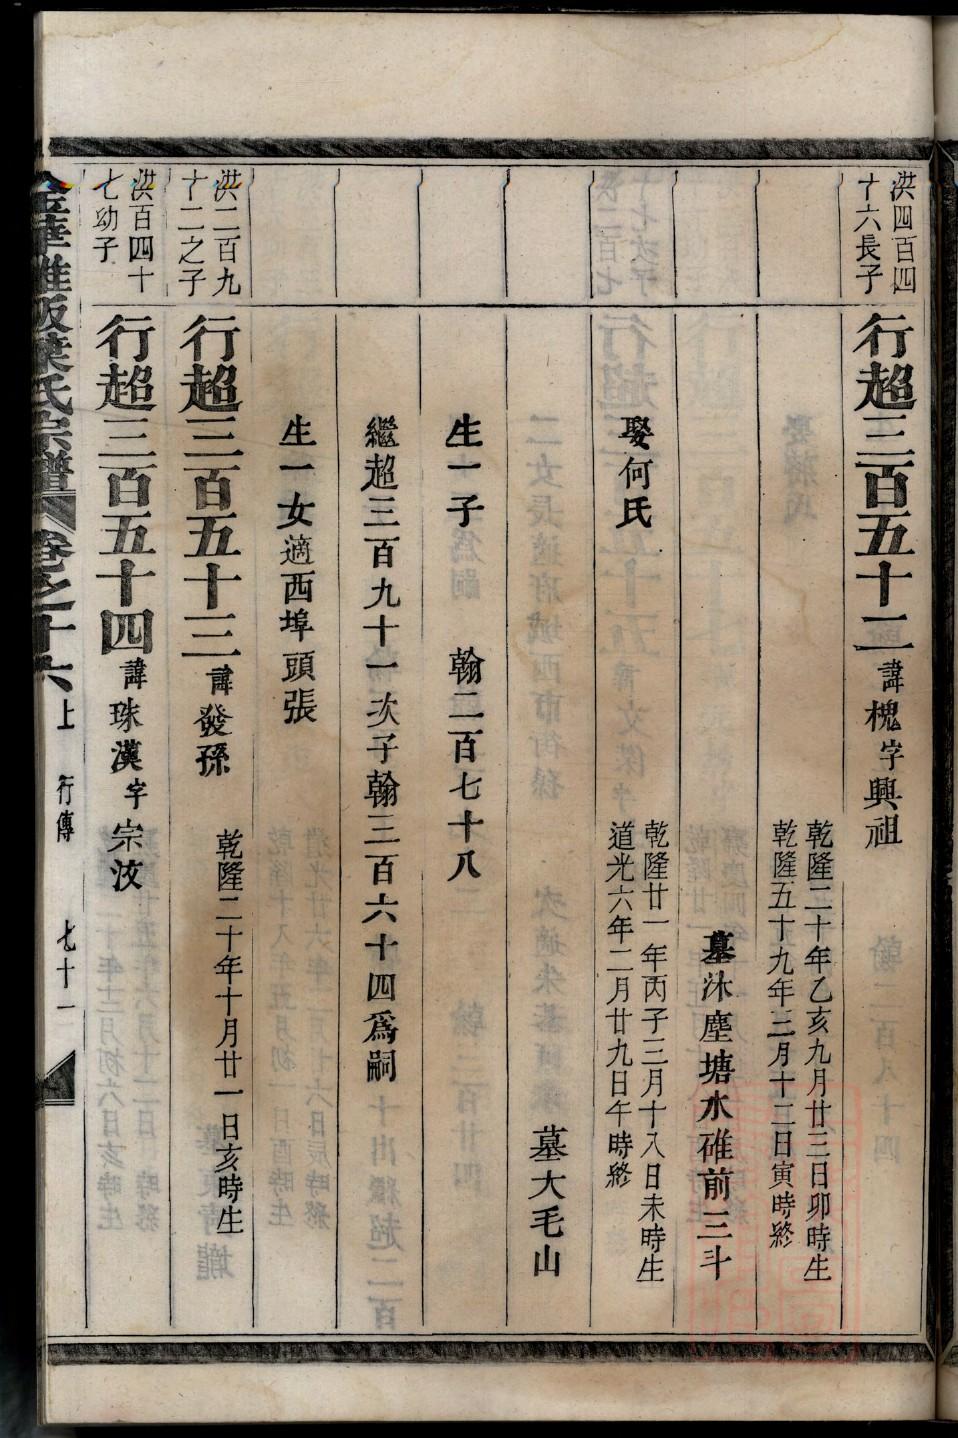 洪四百四
十六長子
行超三百五十二諱槐字興祖
乾隆二十年乙亥九月廿三日卯時生
乾隆五十九年三月十二日寅時終
墓沐塵塘水碓前三斗
娶何氏
乾隆廿一年丙子三月十八日未時生
道光六年二月廿九日午時終
墓大毛山
生一子 翰二百七十八
繼超三百九十一次子翰三百六十四爲嗣
生一女適西埠頭張
洪二百九
十二之子
行超三百五十三諱發孫
乾隆二十年十月廿一日亥時生
洪百四十
七幼子
行超三百五十四諱珠漢字宗汝
金華雅畈葉氏宗譜 卷之十六上 行傳 七十一